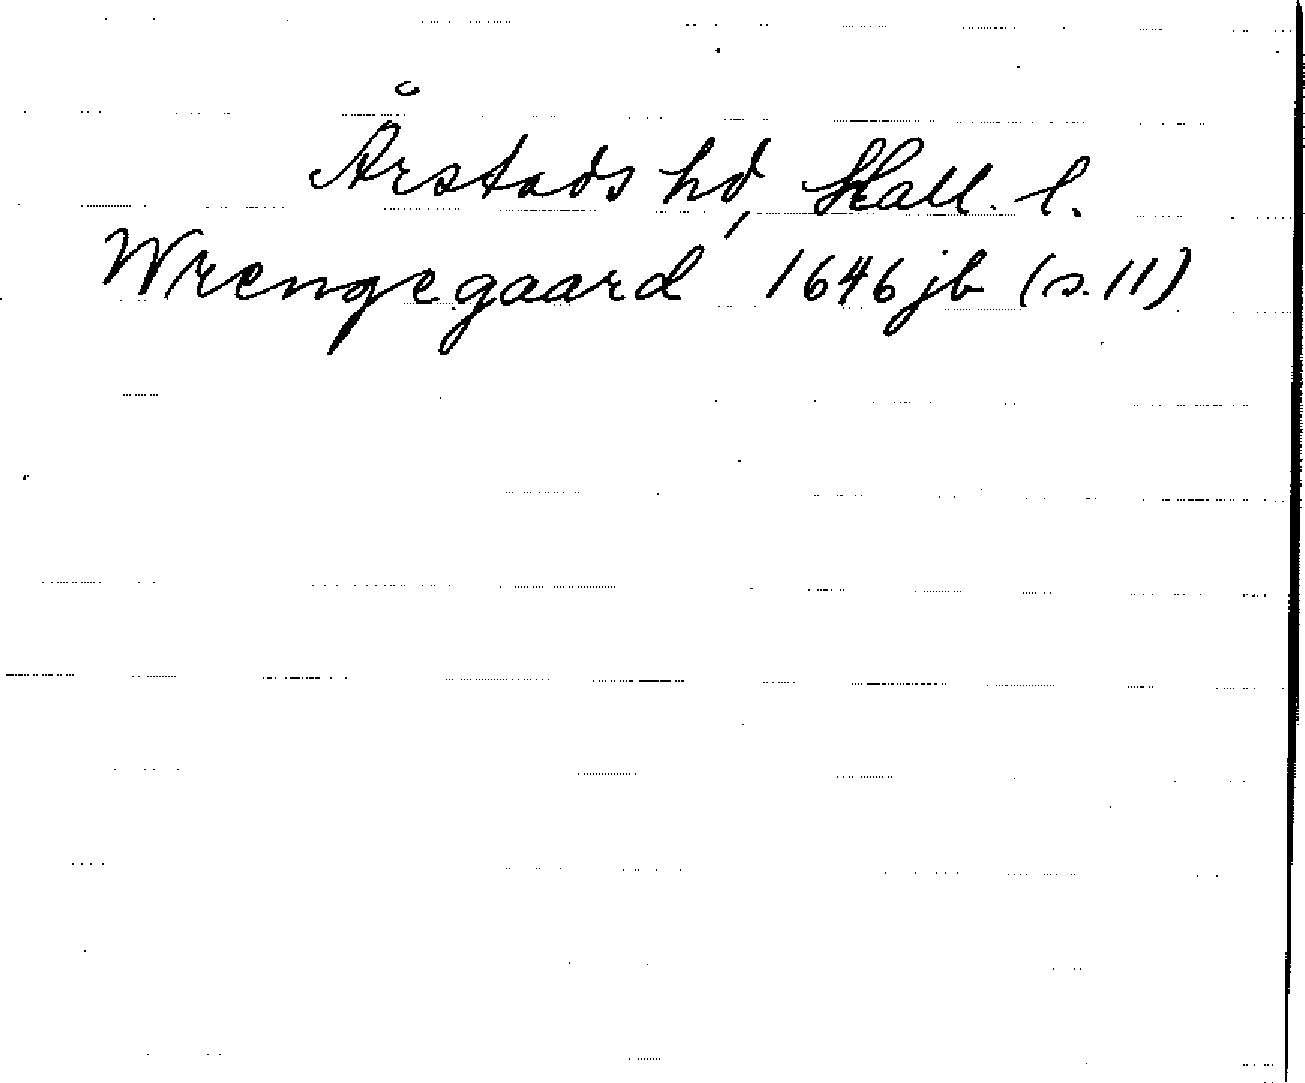 Årstads hd, Hall. l.
Wrengegaard 1646 jb (s. 11)